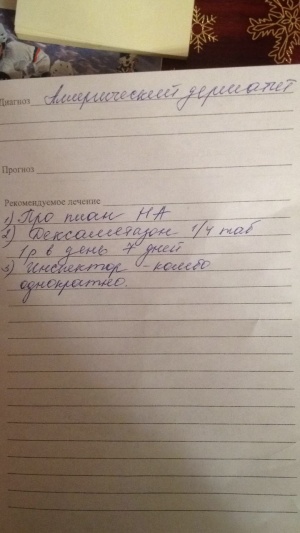 Диагноз Алиргический дерматит
Прогноз
Рекомендуемое лечение
1) Про план НА
2) Дексаметазон 1/4 таб
1р в день 7 дней
3) Инспектор - комбо
однократно.